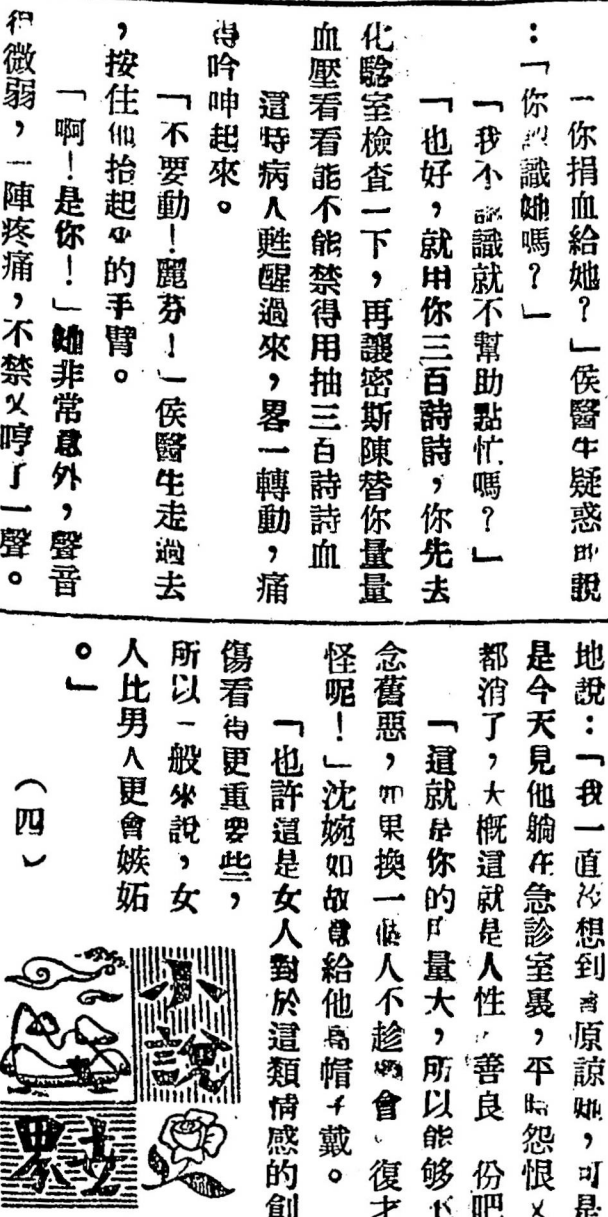 「你捐血給她？」侯醫生疑惑的說
：「你認識她嗎？」
「我不認識就不幫助點忙嗎？」
「也好，就用你三百詩詩，你先去
化驗室檢查一下，再讓密斯陳替你量量
血壓看看能不能禁得用抽三百詩詩血
這時病人甦醒過來，畧一轉動，痛
得呻吟起來。
「不要動！麗芬！」侯醫生走過去
，按住她抬起的手臂。
「啊！是你！」她非常意外，聲音
很微弱，一陣疼痛，不禁又哼了一聲。
地說：「我一直想到原諒她，可是
是今天見他躺在急診室裏，平時怨恨又
都消了，大概這就是人性善良份吧
「這就是你的量大，所以能够不
念舊惡，如果換一個人不趁機會復才
怪呢！」沈婉如故意給他高帽子戴。
「也許這是女人對於這類情感的創
傷看得更重要些，
所以一般來說，女
人比男人更會嫉妬
。」
（四）
小說
世界